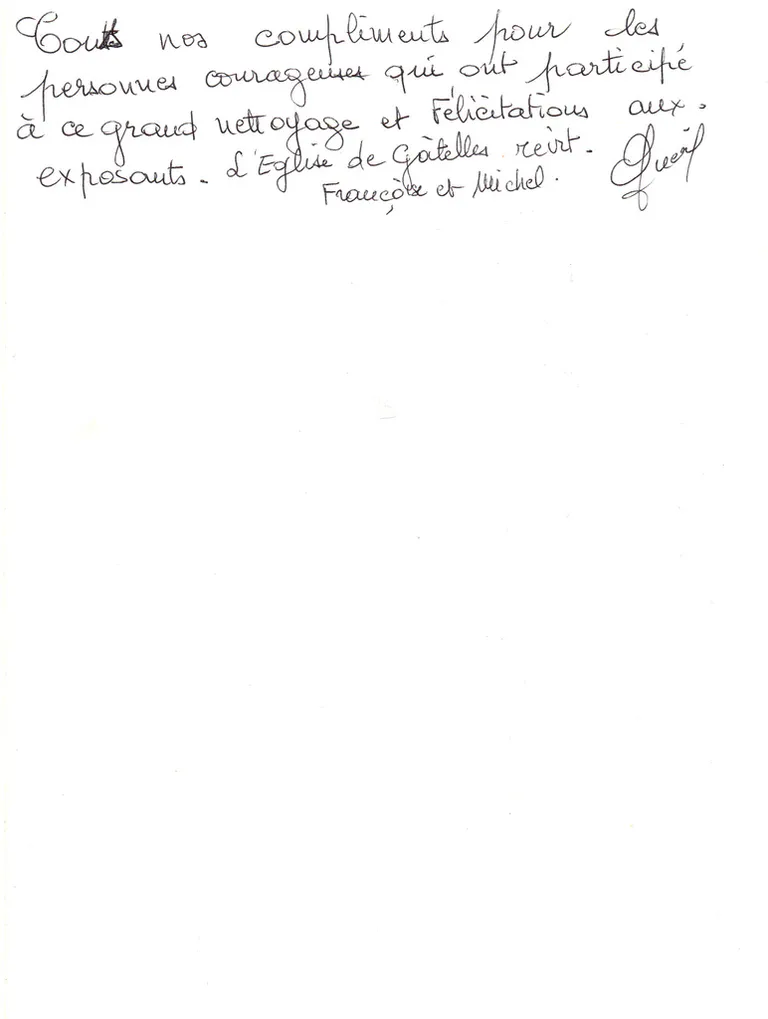 Touts nos compliments pour les
personnes courageuses qui ont participé
à ce grand nettoyage et Félicitations aux.
exposants. L'Eglise de Gâtelles revit.
Françoise et Michel.